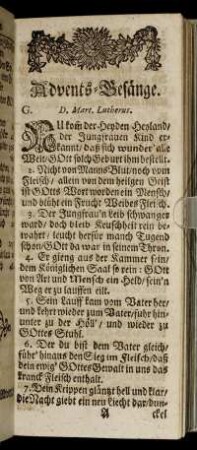 Advents-Gesänge.
G. D. Mart. Lutherus.
NU kom̃ der Heyden Heyland/
der Jungfrauen Kind er-
kannt/ daß sich wunder' alle
Welt/ GOtt solch Geburt ihm bestellt.
2. Nicht von Manns-Blut/ noch vom
Fleisch/ allein von dem heilgen Geist
ist GOtts Wort worden ein Mensch/
und blüht ein Frucht Weibes Fleisch.
3. Der Jungfrau'n Leib schwanger
ward/ doch bleib Keuschheit rein be-
wahrt/ leucht herfür manch Tugend
schon/ GOtt da war in seinem Thron.
4. Er gieng aus der Kammer sein/
dem Königlichen Saal so rein: GOtt
von Art und Mensch ein Held/ sein'n
Weg er zu lauffen eilt.
5. Sein Lauff kam vom Vater her/
und kehrt wieder zum Vater/ fuhr hin-
unter zu der Höll'/ und wieder zu
GOttes Stuhl.
6. Der du bist dem Vater gleich/
führ' hinaus den Sieg im Fleisch/ daß
dein ewig' GOttes Gewalt in uns das
kranck Fleisch enthalt.
7. Dein Krippen gläntzt hell und klar/
die Nacht giebt ein neu Liecht dar/ dun-
A ckel